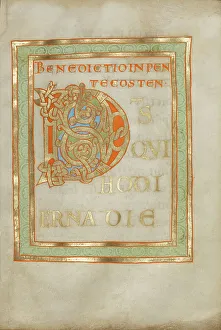 BENEDICTIO IN PEN
TECOSTEN
D S
QVI
HODI
ERNA DIE